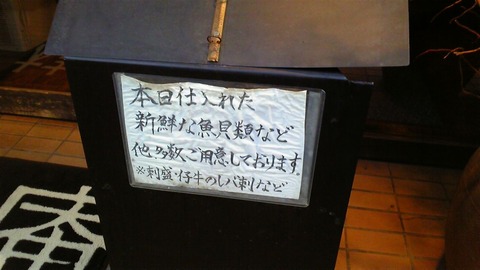 本日仕入れた
新鮮な魚貝類など
他多数、ご用意しております。
※刺盛・仔牛のレバ刺など